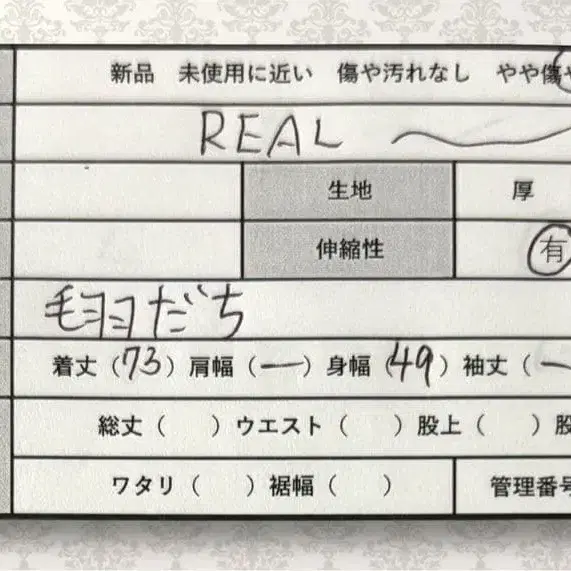 新品 未使用に近い 傷や汚れなし やや傷や
REAL
生地 厚
伸縮性 有
毛羽だち
着丈(73) 肩幅(ー) 身幅(49) 袖丈(ー
総丈( ) ウエスト( ) 股上( ) 股
ワタリ( ) 裾幅( ) 管理番号